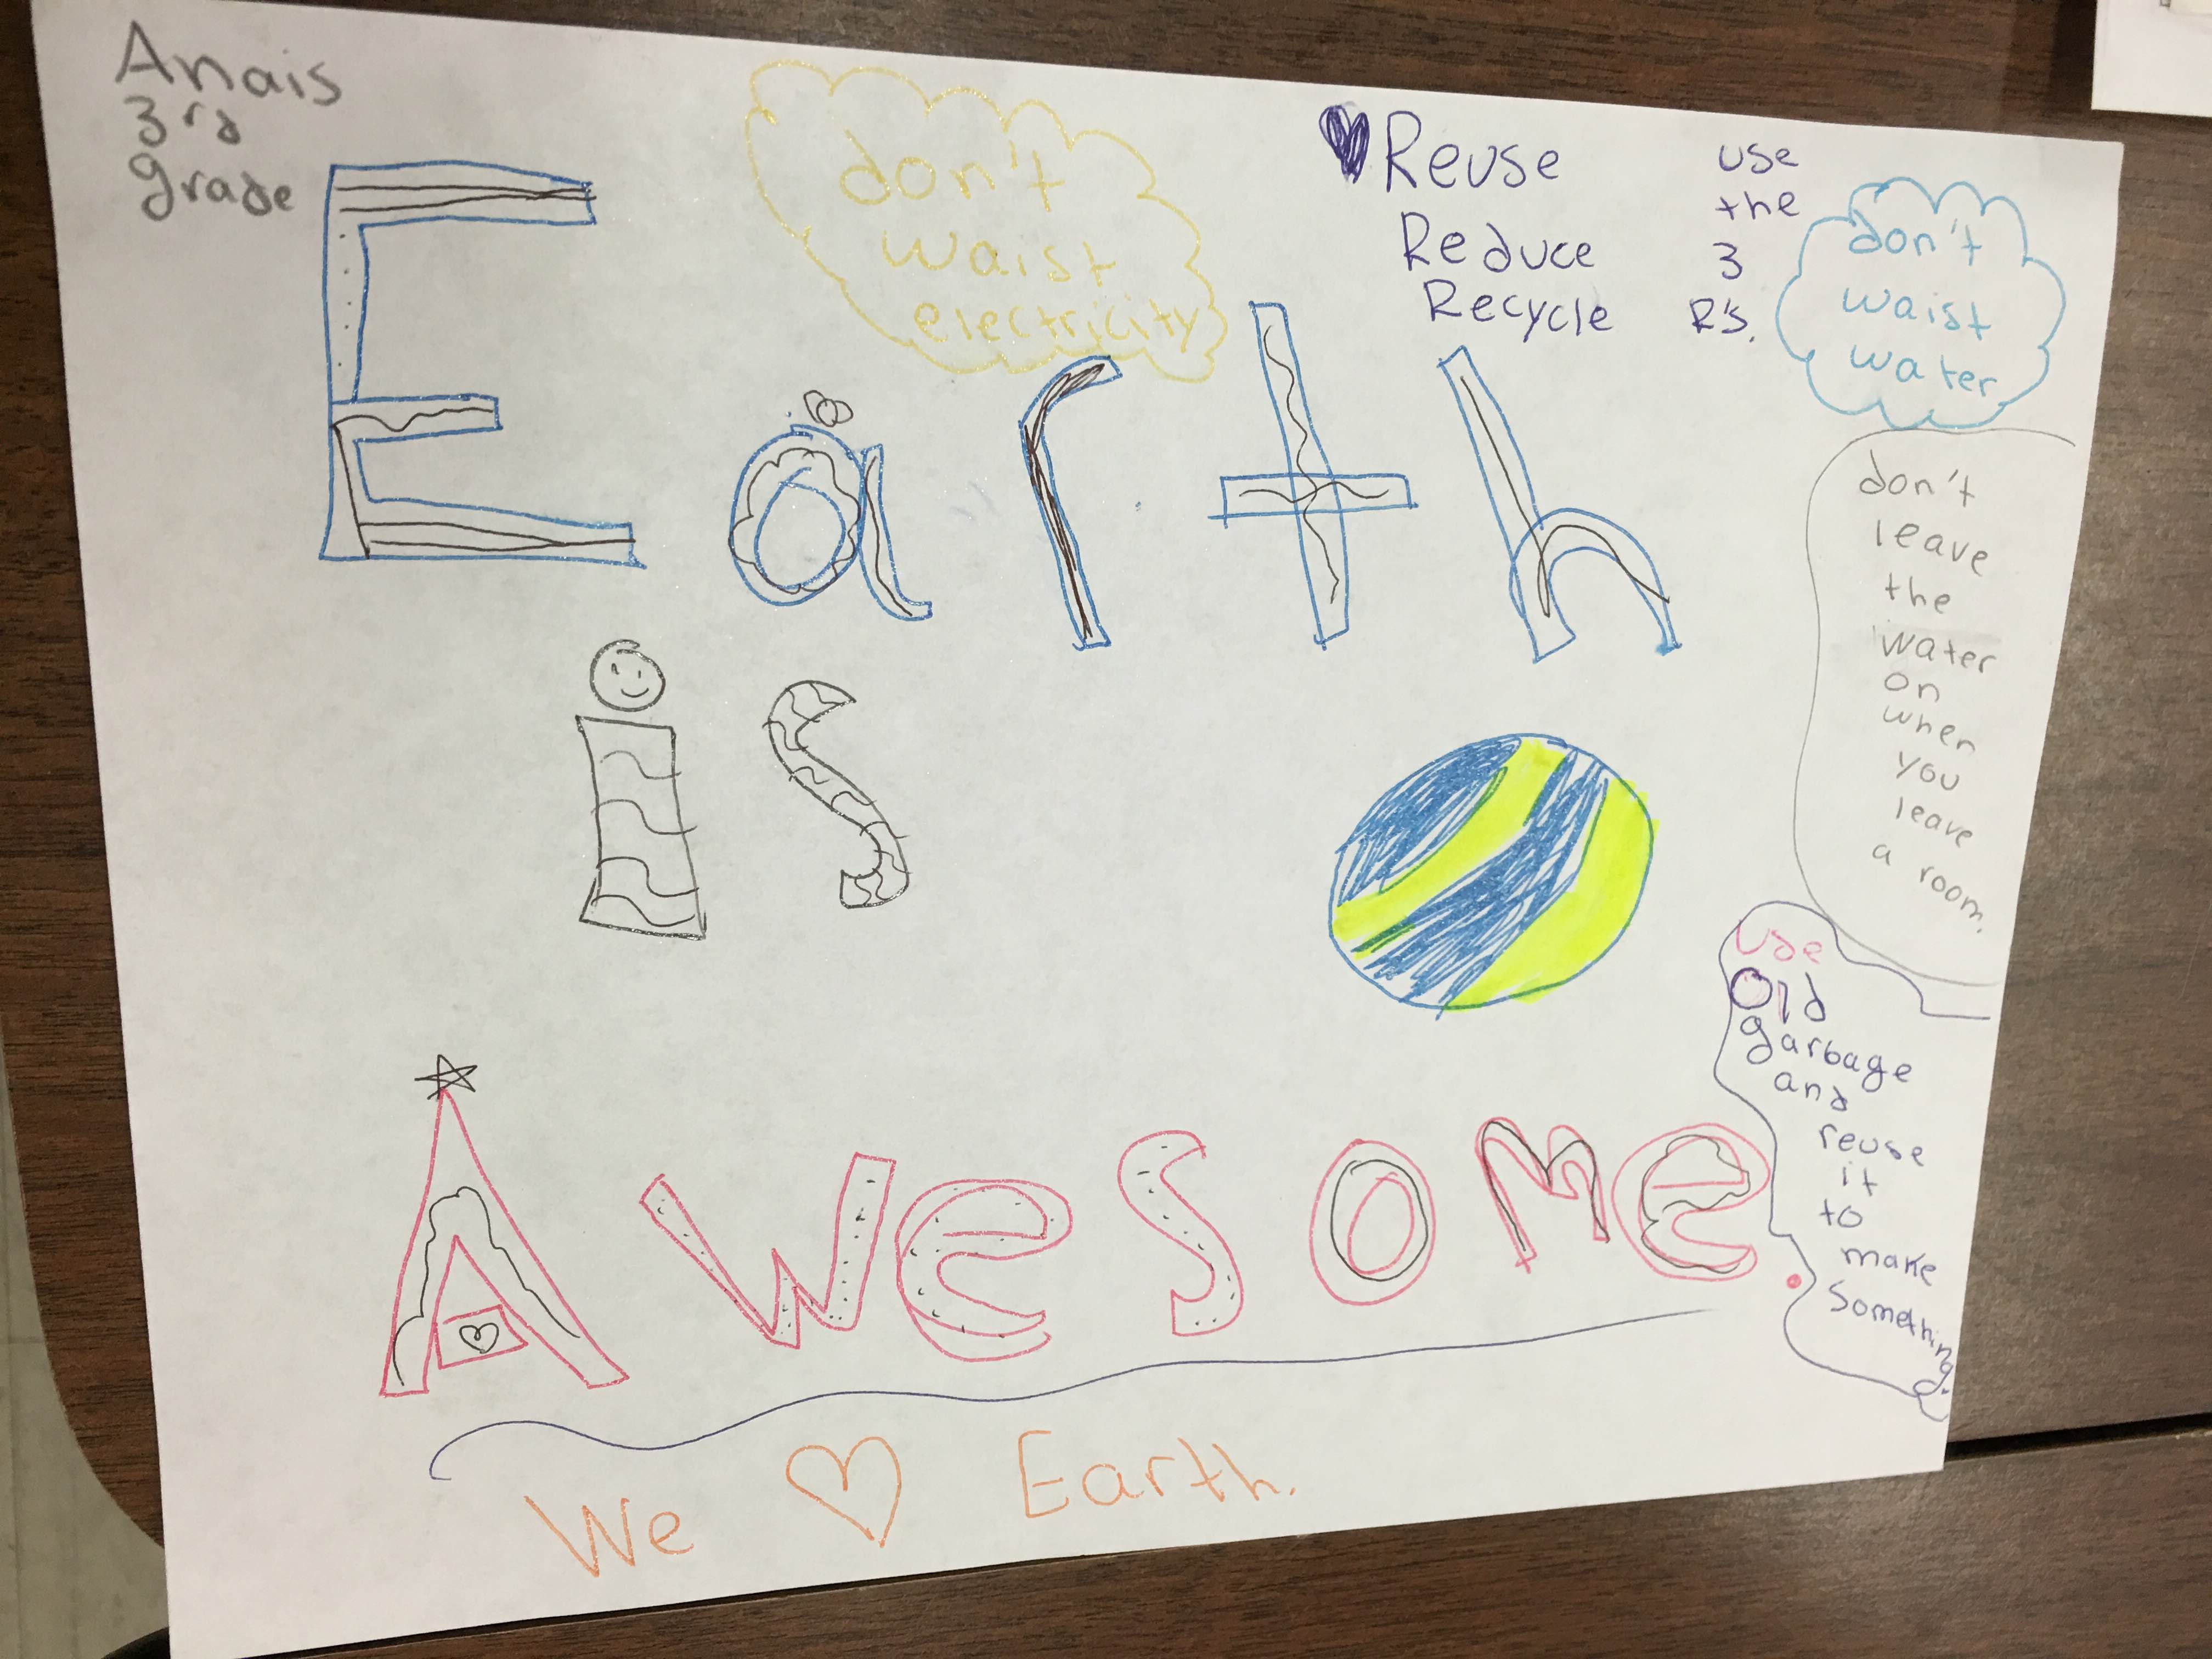 Anais
3rd
grade
don't
waist
electricity
Reuse
Reduce
Recycle
use
the
3
R's.
don't
waist
water
Earth
is
Awesome
don't
leave
the
water
on
when
you
leave
a room.
use
Old
garbage
and
reuse
it
to
make
Something.
We ♡ Earth.